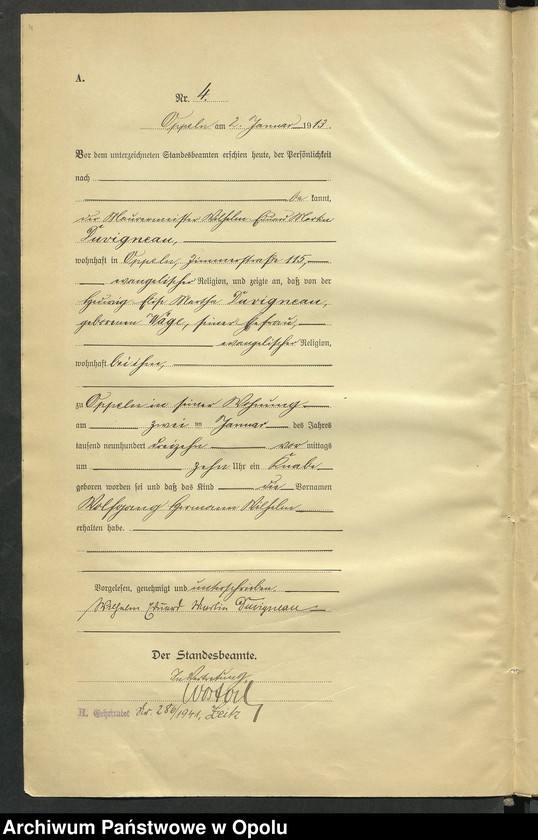 A.
Nr. 4.
Oppeln am 2. Januar 1913.
Vor dem unterzeichneten Standesbeamten erschien heute, der Persönlichkeit
nach
be kannt,
der Maurermeister Wilhelm Eduard Martin
Duvigneau,
wohnhaft in Oppeln, Zimmerstraße 115,
evangelischer Religion, und zeigte an, daß von der
Hedwig Elise Martha Duvigneau,
geborenen Wäge, seiner Ehefrau,
evangelischer Religion,
wohnhaft bei ihm,
zu Oppeln in seiner Wohnung
am zwei ten Januar des Jahres
tausend neunhundert dreizehn vor mittags
um zehn Uhr ein Knabe
geboren worden sei und daß das Kind die Vornamen
Wolfgang Hermann Wilhelm
erhalten habe.
Vorgelesen, genehmigt und unterschrieben.
Wilhelm Eduard Martin Duvigneau
Der Standesbeamte.
In Vertretung
Nr. 286/1941, Zeitz
Archiwum Państwowe w Opolu